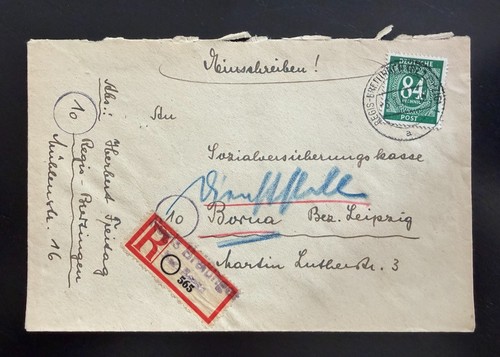 Einschreiben!
DEUTSCHE
84
PFENNIG
POST
a
An
Sozialversicherungskasse
Dienststelle
10 Borna Bez. Leipzig
Martin Lutherstr. 3
R
565
Abs.: Herbert Freitag
10 Regis-Breitingen
Mühlenstr. 16